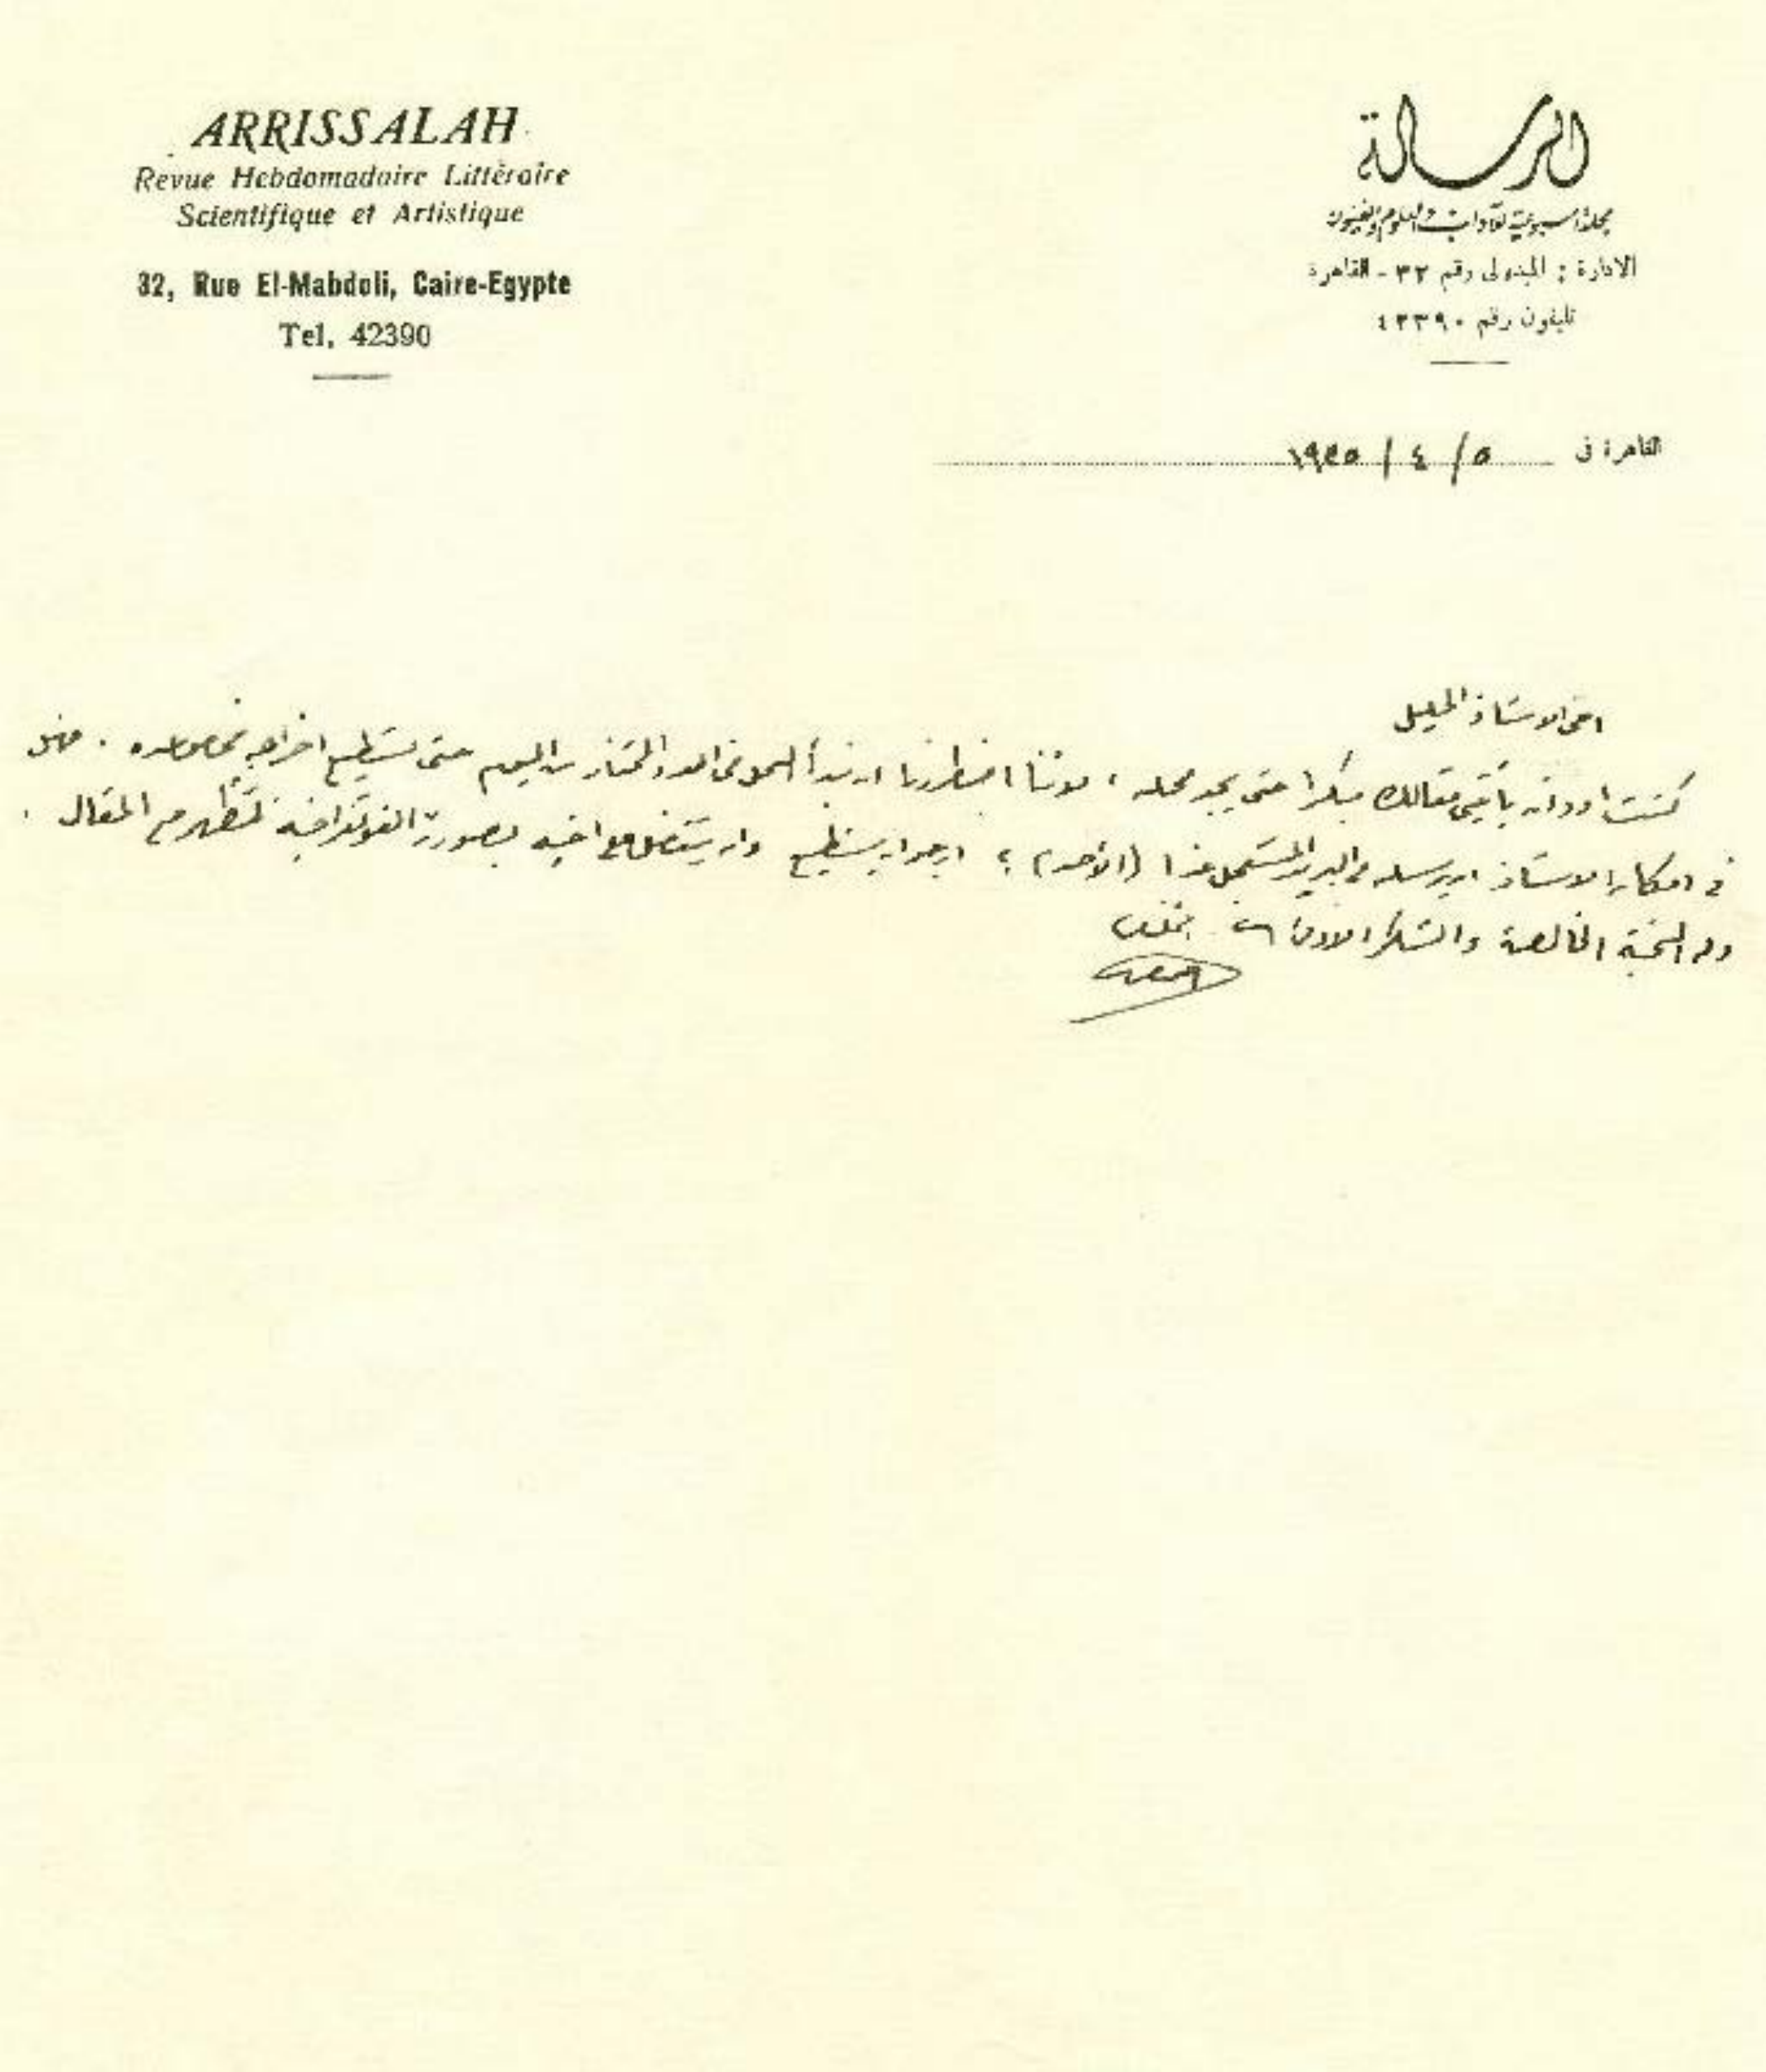 ARRISSALAH
Revue Hebdomadaire Littéraire
Scientifique et Artistique
32, Rue El-Mabdoli, Caire-Egypte
Tel. 42390
الرسالة
مجلة أسبوعية للآداب والعلوم والفنون
الادارة : المبدولى رقم ٣٢ - القاهرة
تليفون رقم ٤٢٣٩٠
القاهرة فى ٥ / ٤ / ١٩٣٥
اخى الاستاذ الجليل
كنت اود ان يأتينى مقالك مبكرا حتى يجد محله ، لاننا اضطررنا ان نبدأ العمل فى العدد الممتاز من اليوم حتى نستطيع اخراجه . فهل
فى امكان الاستاذ ان يرسله فى البريد المستعجل غدا (الأحد) ؟ ارجو ان يستطيع وان يتفضل على اخيه بصورته الفوتغرافية لتظهر مع المقال .
وله التحية الخالصة والشكر الاوفى المخلص